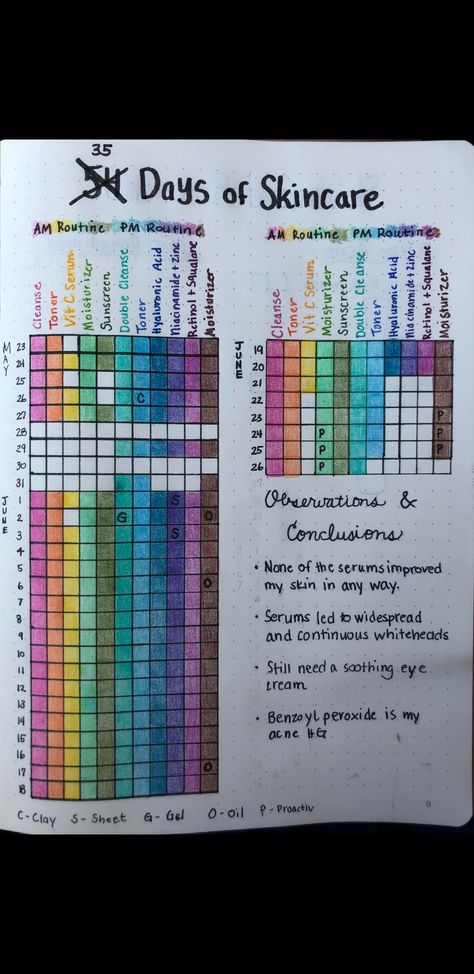 35
54 Days of Skincare
AM Routine PM Routine
Cleanse
Toner
Vit C. Serum
Moisturizer
Sunscreen
Double Cleanse
Toner
Hyaluronic Acid
Niacinamide + Zinc
Retinol + Squalane
Moisturizer
MAY
23
24
25
26 C
27
28
29
30
31
JUNE
1 S
2 G O
3 S
4
5
6 O
7
8
9
10
11
12
13
14
15
16
17 O
18
C-Clay S-Sheet G-Gel O-Oil P-Proactiv
AM Routine PM Routine
Cleanse
Toner
Vit C Serum
Moisturizer
Sunscreen
Double Cleanse
Toner
Hyaluronic Acid
Niacinamide + Zinc
Retinol + Squalane
Moisturizer
JUNE
19
20
21
22
23 P
24 P P
25 P P
26 P
Observations &
Conclusions
• None of the serums improved
my skin in any way.
• Serums led to widespread
and continuous whiteheads
• Still need a soothing eye
cream
• Benzoyl peroxide is my
acne HG.
9